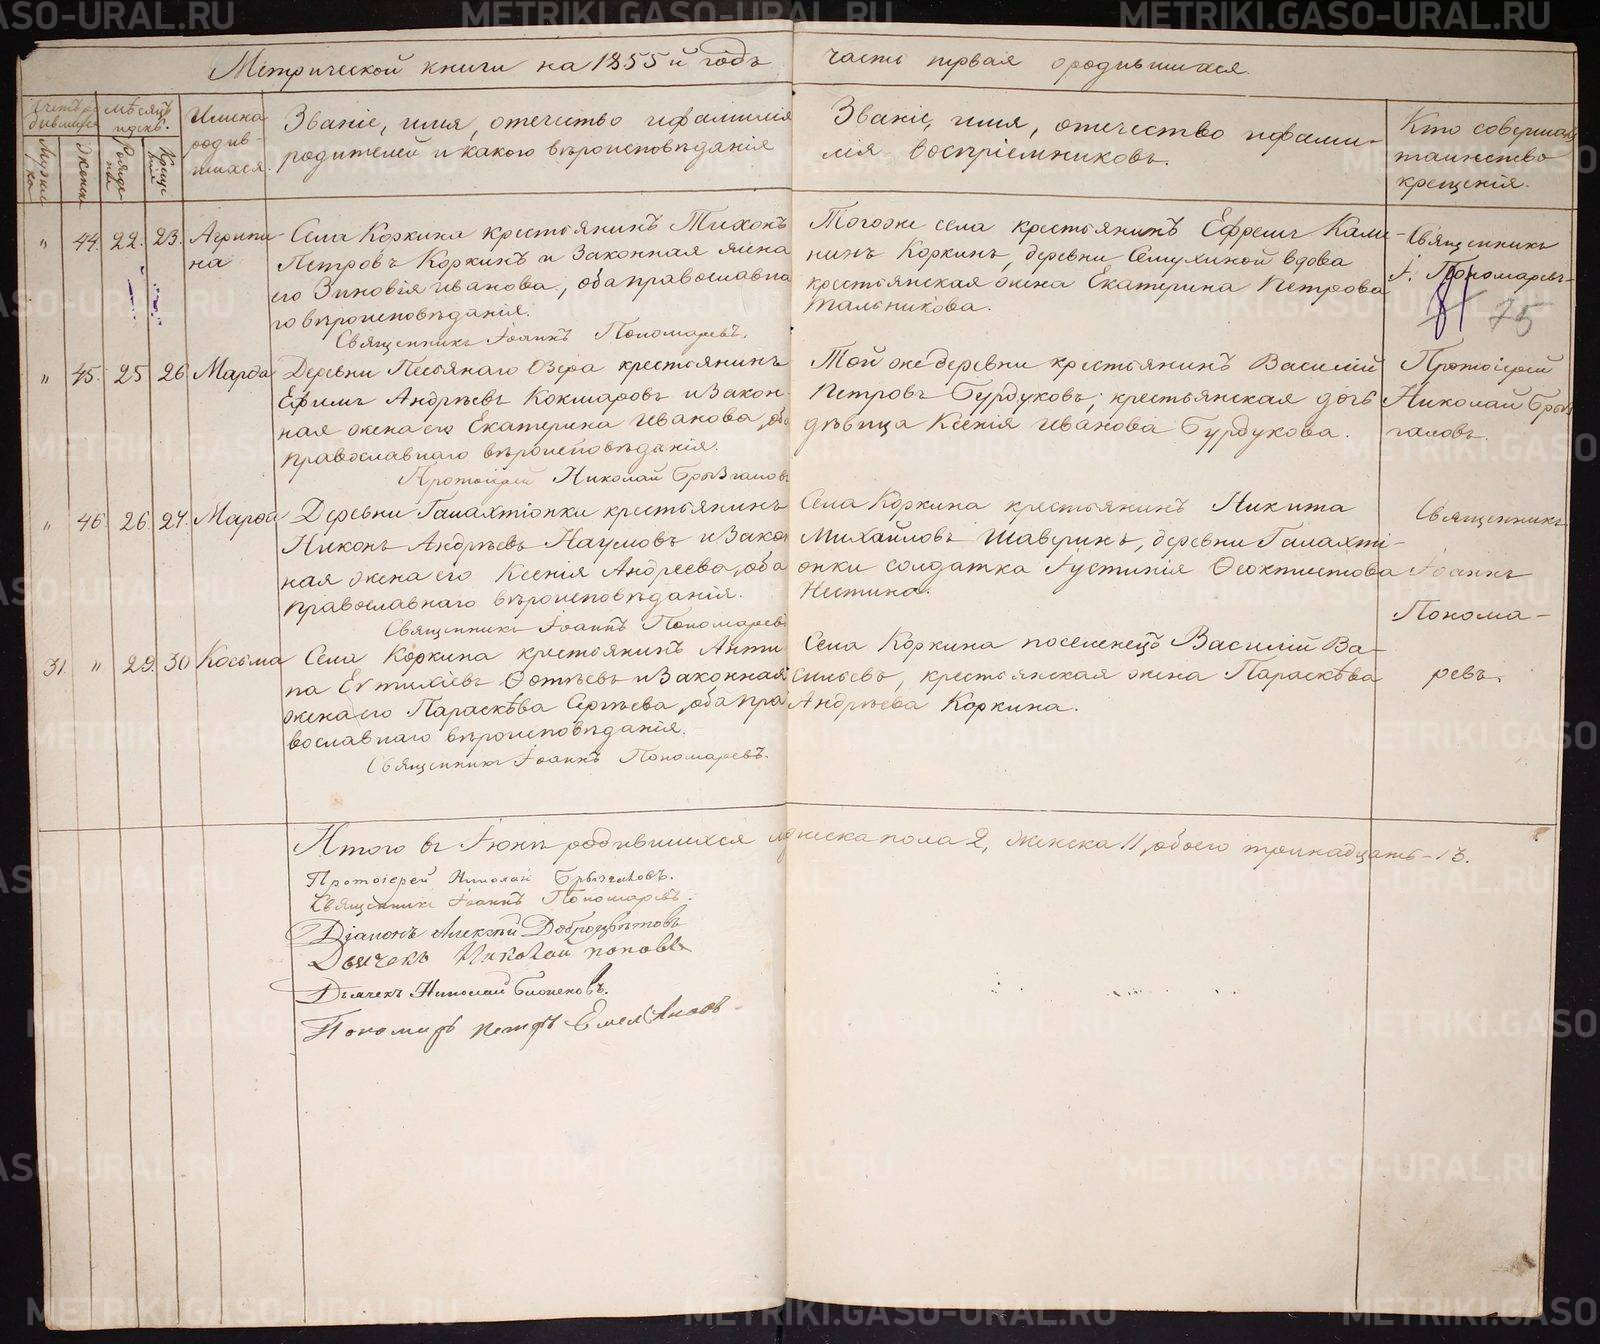 Метрической книги на 1855 й годъ часть первая о родившихся.
мѣсяцъ
и день.
Мужес
ка
Женска
Рожде
нія
Креще
нія
Имена
родив
шихся.
Званіе, имя, отечество и фамилія
родителей и какого вѣроисповѣданія
Званіе, имя, отечество и фами-
лія воспріемниковъ.
Кто совершалъ
таинство
крещенія.
" 44. 22. 23. Агрипи
на
Села Коркина крестьянинъ Тихонъ
Петровъ Коркинъ и законная жена
его Зиновія Иванова, оба православна
го вѣроисповѣданія.
Священникъ Іоаннъ Пономаревъ.
Того же села крестьянинъ Ефремъ Кали-
нинъ Коркинъ, деревни Семухиной вдова
крестьянская жена Екатерина Петрова
Тальникова.
Священникъ
І. Пономаревъ
81 75
" 45. 25 26 Марѳа
Деревни Песьянаго Озера крестьянинъ
Ефимъ Андреевъ Кокшаровъ и закон
ная жена его Екатерина Иванова, оба
православнаго вѣроисповѣданія.
Протоіерей Николай Брызгаловъ
Той же деревни крестьянинъ Василій
Петровъ Бурдуковъ, крестьянская дочь
дѣвица Ксенія Иванова Бурдукова.
Протоіерей
Николай Брыз
галовъ.
" 46 26. 27. Марѳа
Деревни Галахтіонки крестьянинъ
Никонъ Андреевъ Наумовъ и закон
ная жена его Ксенія Андреева, оба
православнаго вѣроисповѣданія.
Священникъ Іоаннъ Пономаревъ
Села Коркина крестьянинъ Никита
Михайловъ Шаверинъ, деревни Галахті-
онки солдатка Іустинія Ѳеоктистова
Нестина.
Священникъ
Іоаннъ
Понома-
ревъ.
31. " 29. 30 Косьма
Села Коркина крестьянинъ Анти
па Евтихіевъ Ѳотѣевъ и законная
жена его Параскѣва Сергѣева, оба пра
вославнаго вѣроисповѣданія.
Священникъ Іоаннъ Пономаревъ.
Села Коркина поселенецъ Василій Ва-
сильевъ, крестьянская жена Параскѣва
Андреева Коркина.
Итого въ Іюнѣ родившихся мужеска пола 2, женска 11, обоего тринадцать - 13.
Протоіерей Николай Брызгаловъ.
Священникъ Іоаннъ Пономаревъ.
Діаконъ Алексѣй Доброцвѣтовъ
Дьячекъ Николай Поповъ
Дьячекъ Николай
Пономарь Петръ Емельяновъ
METRIKI.GASO-URAL.RU